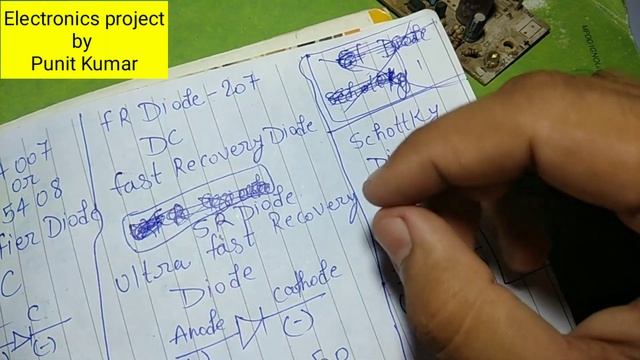 Electronics project
by
Punit Kumar
007
or
5408
fier Diode
C
C
(-)
FR Diode - 207
DC
fast Recovery Diode
SR Diode
Ultra fast Recovery
Diode
Anode
Cathode
(-)
Diode
Schottky